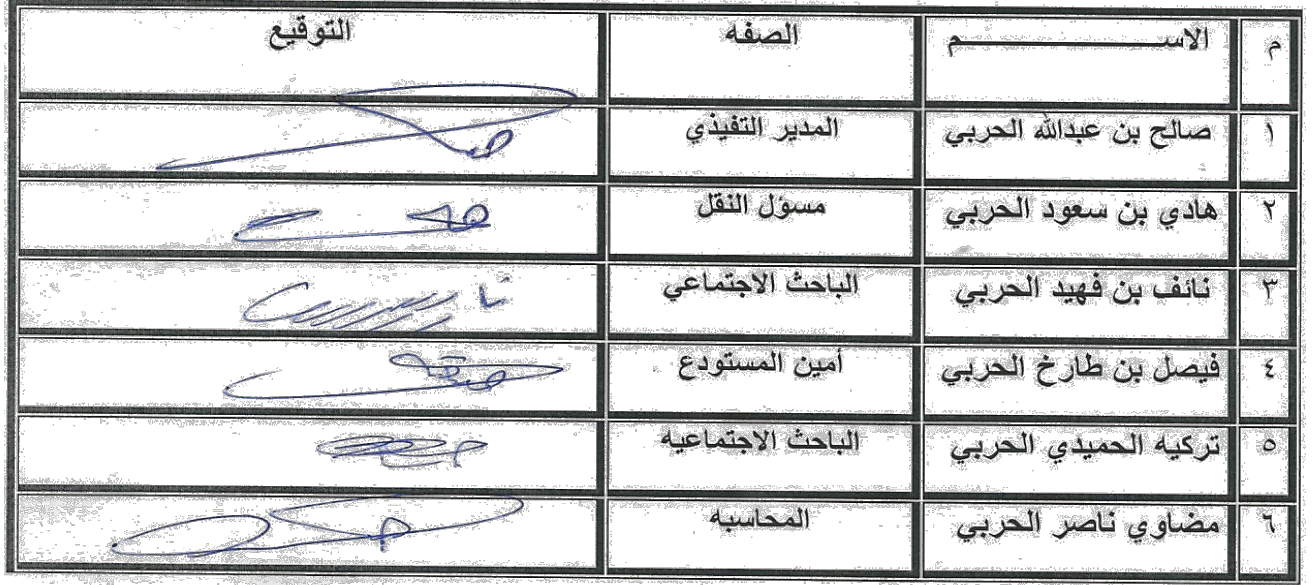 م الاســـــــــــــــم الصفه التوقيع
١ صالح بن عبدالله الحربي المدير التفيذي
٢ هادي بن سعود الحربي مسؤل النقل
٣ نائف بن فهيد الحربي الباحث الاجتماعي
٤ فيصل بن طارخ الحربي أمين المستودع
٥ تركيه الحميدي الحربي الباحث الاجتماعيه
٦ مضاوي ناصر الحربي المحاسبه